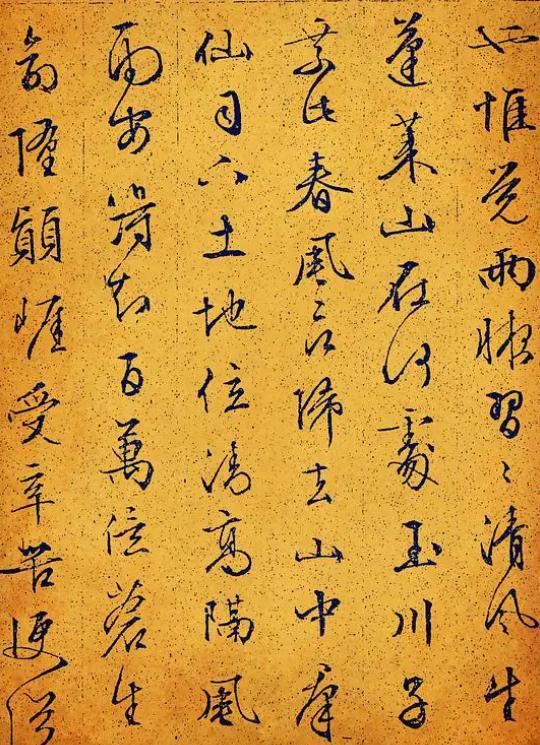 也惟覺兩腋習〻清风生
蓬萊山在何處玉川子
乘此春風欲歸去山中群
仙司下土地位清高隔風
雨安得知百萬億蒼生
命墮顛崖受辛苦便從